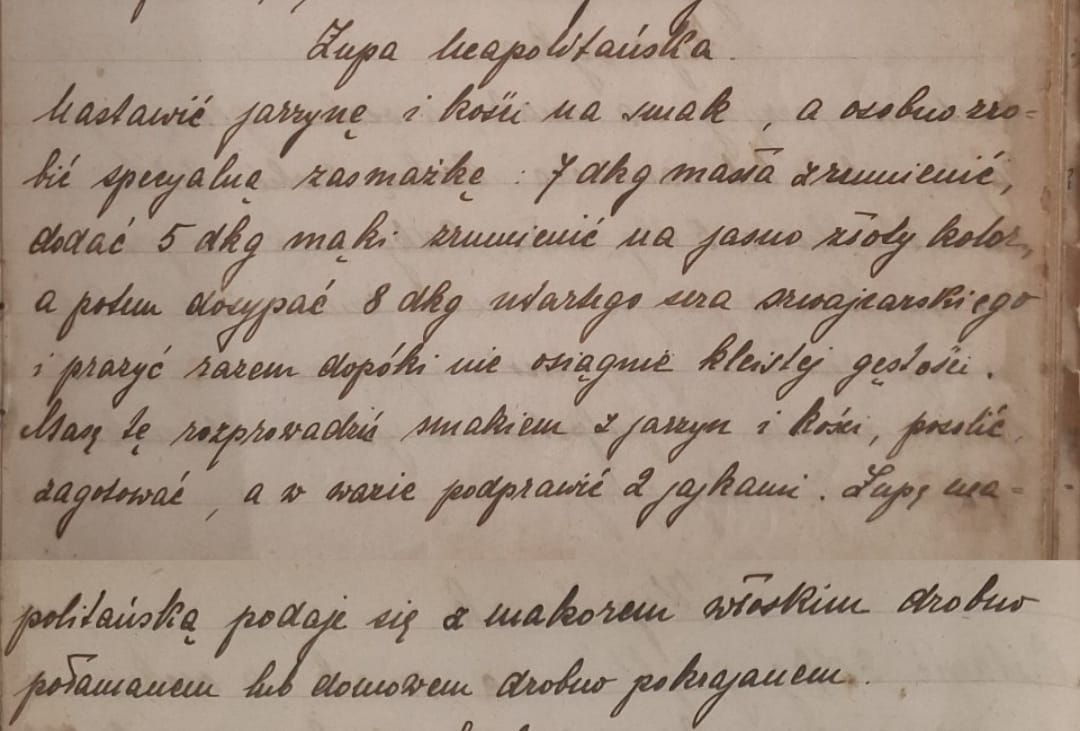 Zupa neapolitańska.
Nastawić jarzynę i kości na smak, a osobno zro=
bić specyalną zasmażkę: 7 dkg masła zrumienić,
dodać 5 dkg mąki zrumienić na jasno złoty kolor,
a potem dosypać 8 dkg utartego sera szwajcarskiego
i prażyć razem dopóki nie osiągnie kleistej gęstości.
Masę tę rozprowadzić smakiem z jarzyn i kości, posolić,
zagotować, a w wazie podprawić 2 jajkami. Zupę nea=
politańską podaje się z makorem włoskim drobno
połamanem lub domowem drobno pokrajanem.